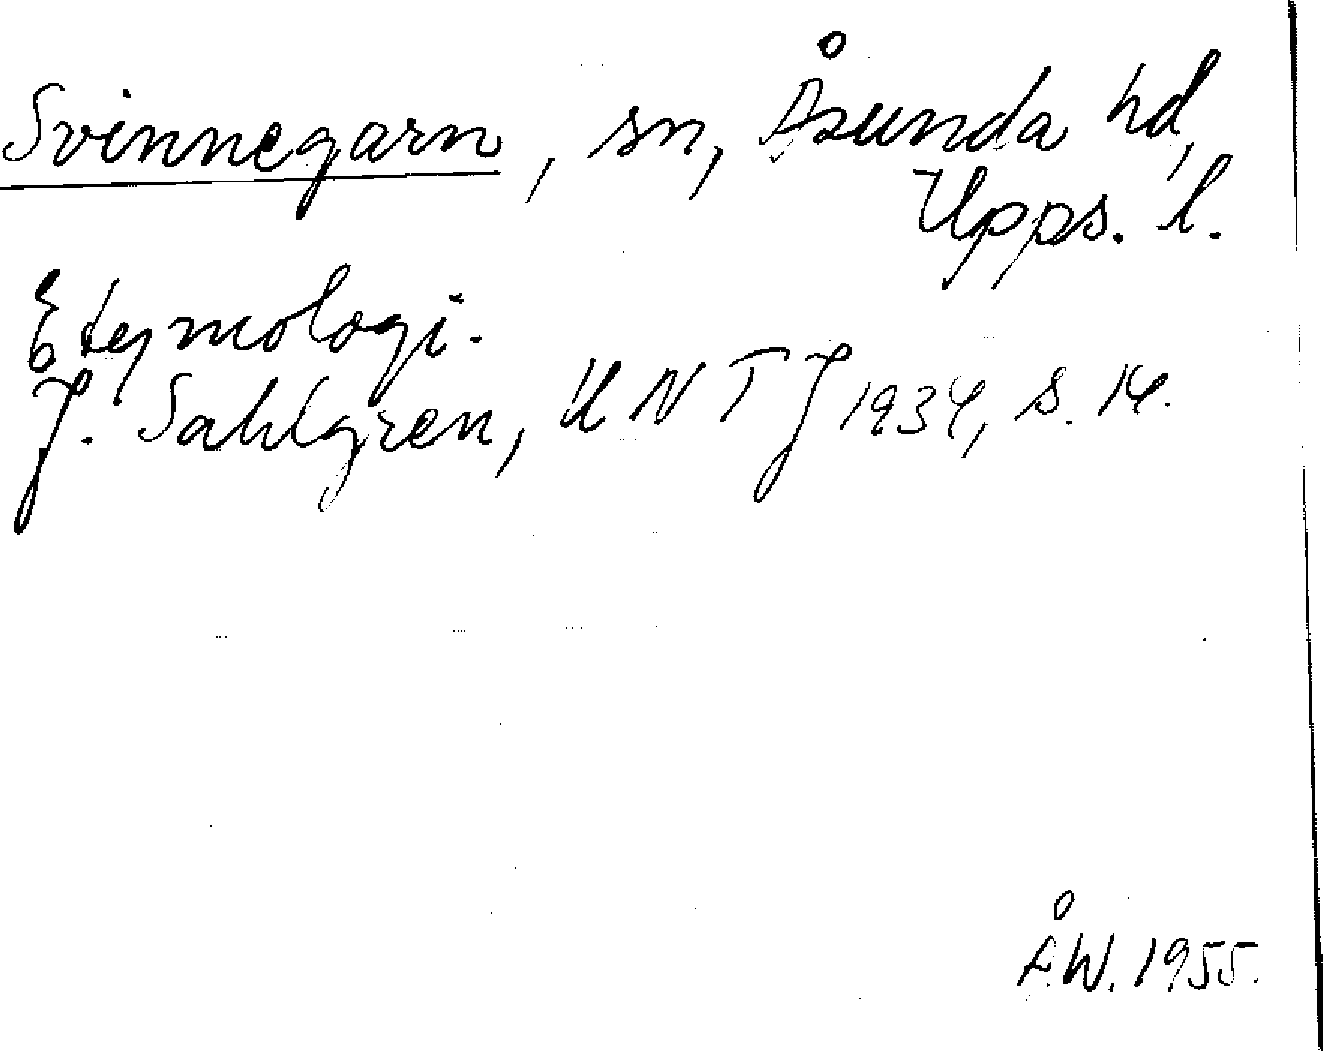 Svinnegarn, sn, Åsunda hd,
Upps. l.
Etymologi.
J. Sahlgren, UNTJ 1934, s. 14.
ÅW. 1955.